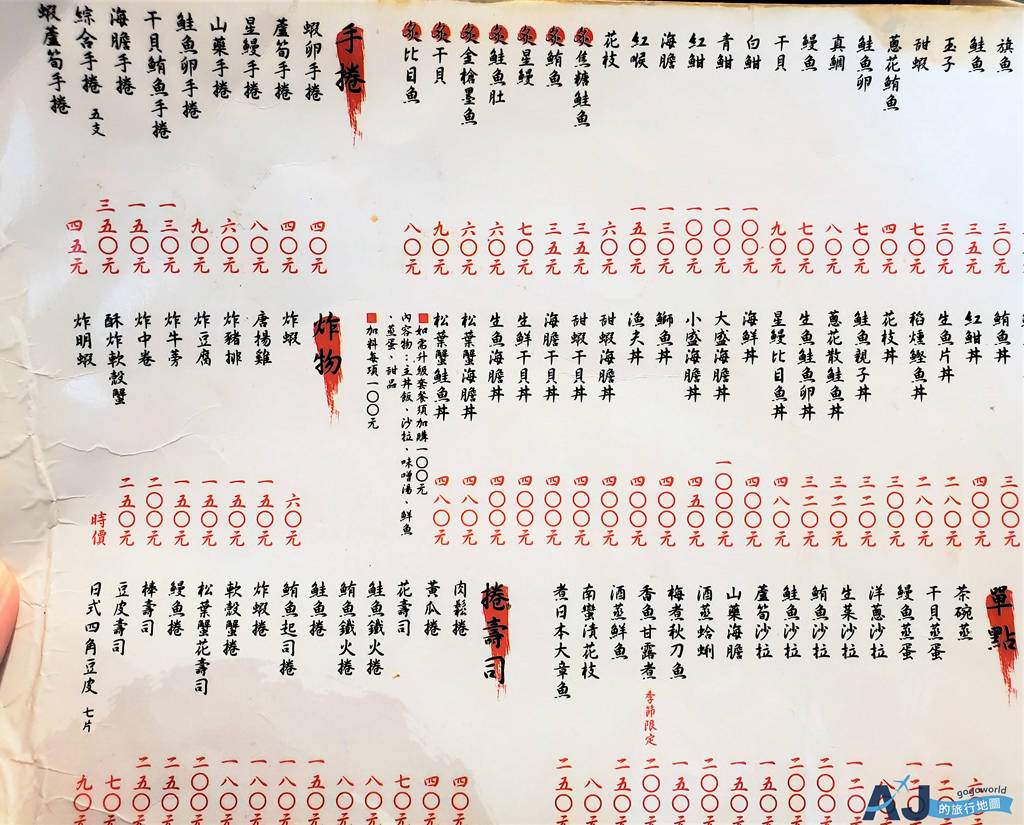 旗魚 三〇元
鮭魚 三五元
玉子 三〇元
甜蝦 七〇元
蔥花鮪魚 四〇元
鮭魚卵 七〇元
真鯛 八〇元
鰻魚 七〇元
干貝 九〇元
白魽 一〇〇元
青魽 一〇〇元
紅魽 一〇〇元
海膽 一三〇元
紅喉 一五〇元
花枝 六〇元
炙焦糖鮭魚 三五元
炙鮪魚 三五元
炙星鰻 七〇元
炙鮭魚肚 六〇元
炙金槍墨魚 六〇元
炙干貝 九〇元
炙比目魚 八〇元
手捲
蝦卵手捲 四〇元
蘆筍手捲 四〇元
星鰻手捲 八〇元
山藥手捲 六〇元
鮭魚卵手捲 九〇元
干貝鮪魚手捲 一三〇元
海膽手捲 一五〇元
綜合手捲 五支 三五〇元
蝦蘆筍手捲 四五元
鮪魚丼 三〇〇元
紅魽丼 四〇〇元
生魚片丼 二八〇元
稻燻鰹魚丼 二八〇元
花枝丼 三〇〇元
鮭魚親子丼 三二〇元
蔥花散鮭魚丼 三二〇元
生魚鮭魚卵丼 三二〇元
星鰻比目魚丼 四八〇元
海鮮丼 四〇〇元
大盛海膽丼 一〇〇〇元
小盛海膽丼 四五〇元
鰤魚丼 四〇〇元
漁夫丼 四〇〇元
甜蝦海膽丼 四〇〇元
甜蝦干貝丼 四〇〇元
海膽干貝丼 四〇〇元
生鮮干貝丼 四〇〇元
生魚海膽丼 四〇〇元
松葉蟹海膽丼 四八〇元
松葉蟹鮭魚丼 四八〇元
■如需升級套餐須加購一〇〇元
內容物:主丼飯、沙拉、味噌湯、鮮魚
、蒸蛋、甜品
■加料每項一〇〇元
炸物
炸蝦 六〇元
唐揚雞 一五〇元
炸豬排 一五〇元
炸豆腐 一五〇元
炸牛蒡 一五〇元
炸中卷 二〇〇元
酥炸軟殼蟹 二五〇元
炸明蝦 時價
單點
茶碗蒸
干貝蒸蛋
鰻魚蒸蛋
洋蔥沙拉
生菜沙拉 一二〇
鮪魚沙拉 二〇〇
鮭魚沙拉 二〇〇
蘆筍沙拉 一五〇
山藥海膽 一五〇
酒蒸蛤蜊 二〇〇
梅煮秋刀魚 一五〇
香魚甘露煮 季節限定 二〇〇
酒蒸鮮魚 二五〇
南蠻漬花枝 八〇
煮日本大章魚 二五〇
捲壽司
肉鬆捲 四〇
黃瓜捲 四〇
花壽司 七〇
鮭魚鐵火捲 八〇
鮪魚鐵火捲 八〇
鮭魚捲 一五〇
鮪魚起司捲 一八〇
炸蝦捲 一八〇
軟殼蟹捲 一八〇
松葉蟹花壽司 二〇〇
鰻魚捲 二五〇
棒壽司 二五〇
豆皮壽司 七〇
日式四角豆皮 七片 九〇
AJ gogoworld
的旅行地圖